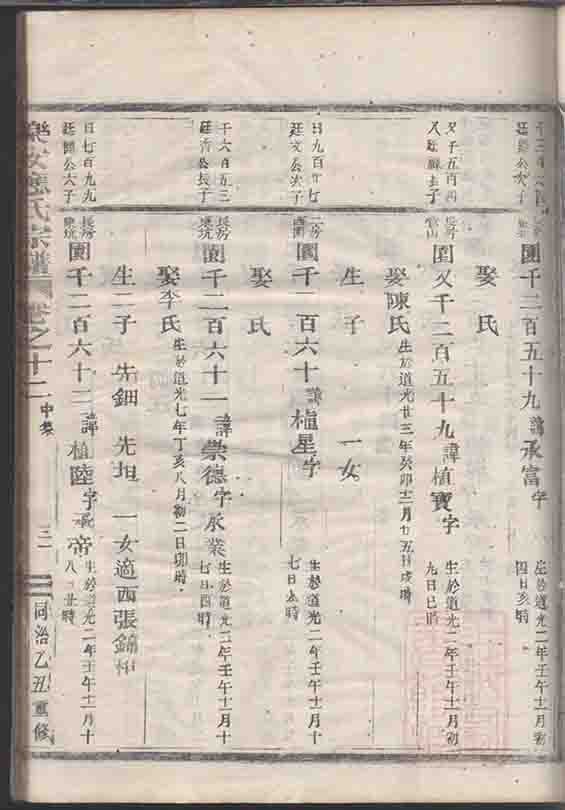 園千二百五十九諱承富字
生於道光二年壬午十一月初
四日亥時
娶氏
又子五百四
長房
園又千二百五十九諱植寶字
生於道光二年壬午十一月初
九日巳時
娶陳氏生於道光廿三年癸卯十二月廿五日戌時
生子 一女
日九百廿七
廷文公次子
二房
園千二百六十諱植星字
生於道光二年壬午十一月十
七日
娶氏
千六百五三
廷秀公長子
長房
坑
園千二百六十一諱崇德字承業
生於道光二年壬午十一月十
七日酉時
娶李氏生於道光七年丁亥八月初二日卯時
生二子 先鈿 先坦 一女適西張錦
日七百九九
廷 公六子
長房
坑
園千二百六十二諱植陸字承帝
生於道光二年壬午十一月十
八日丑時
樂安應氏宗譜 卷之十二 中集
三一
同治乙丑重修